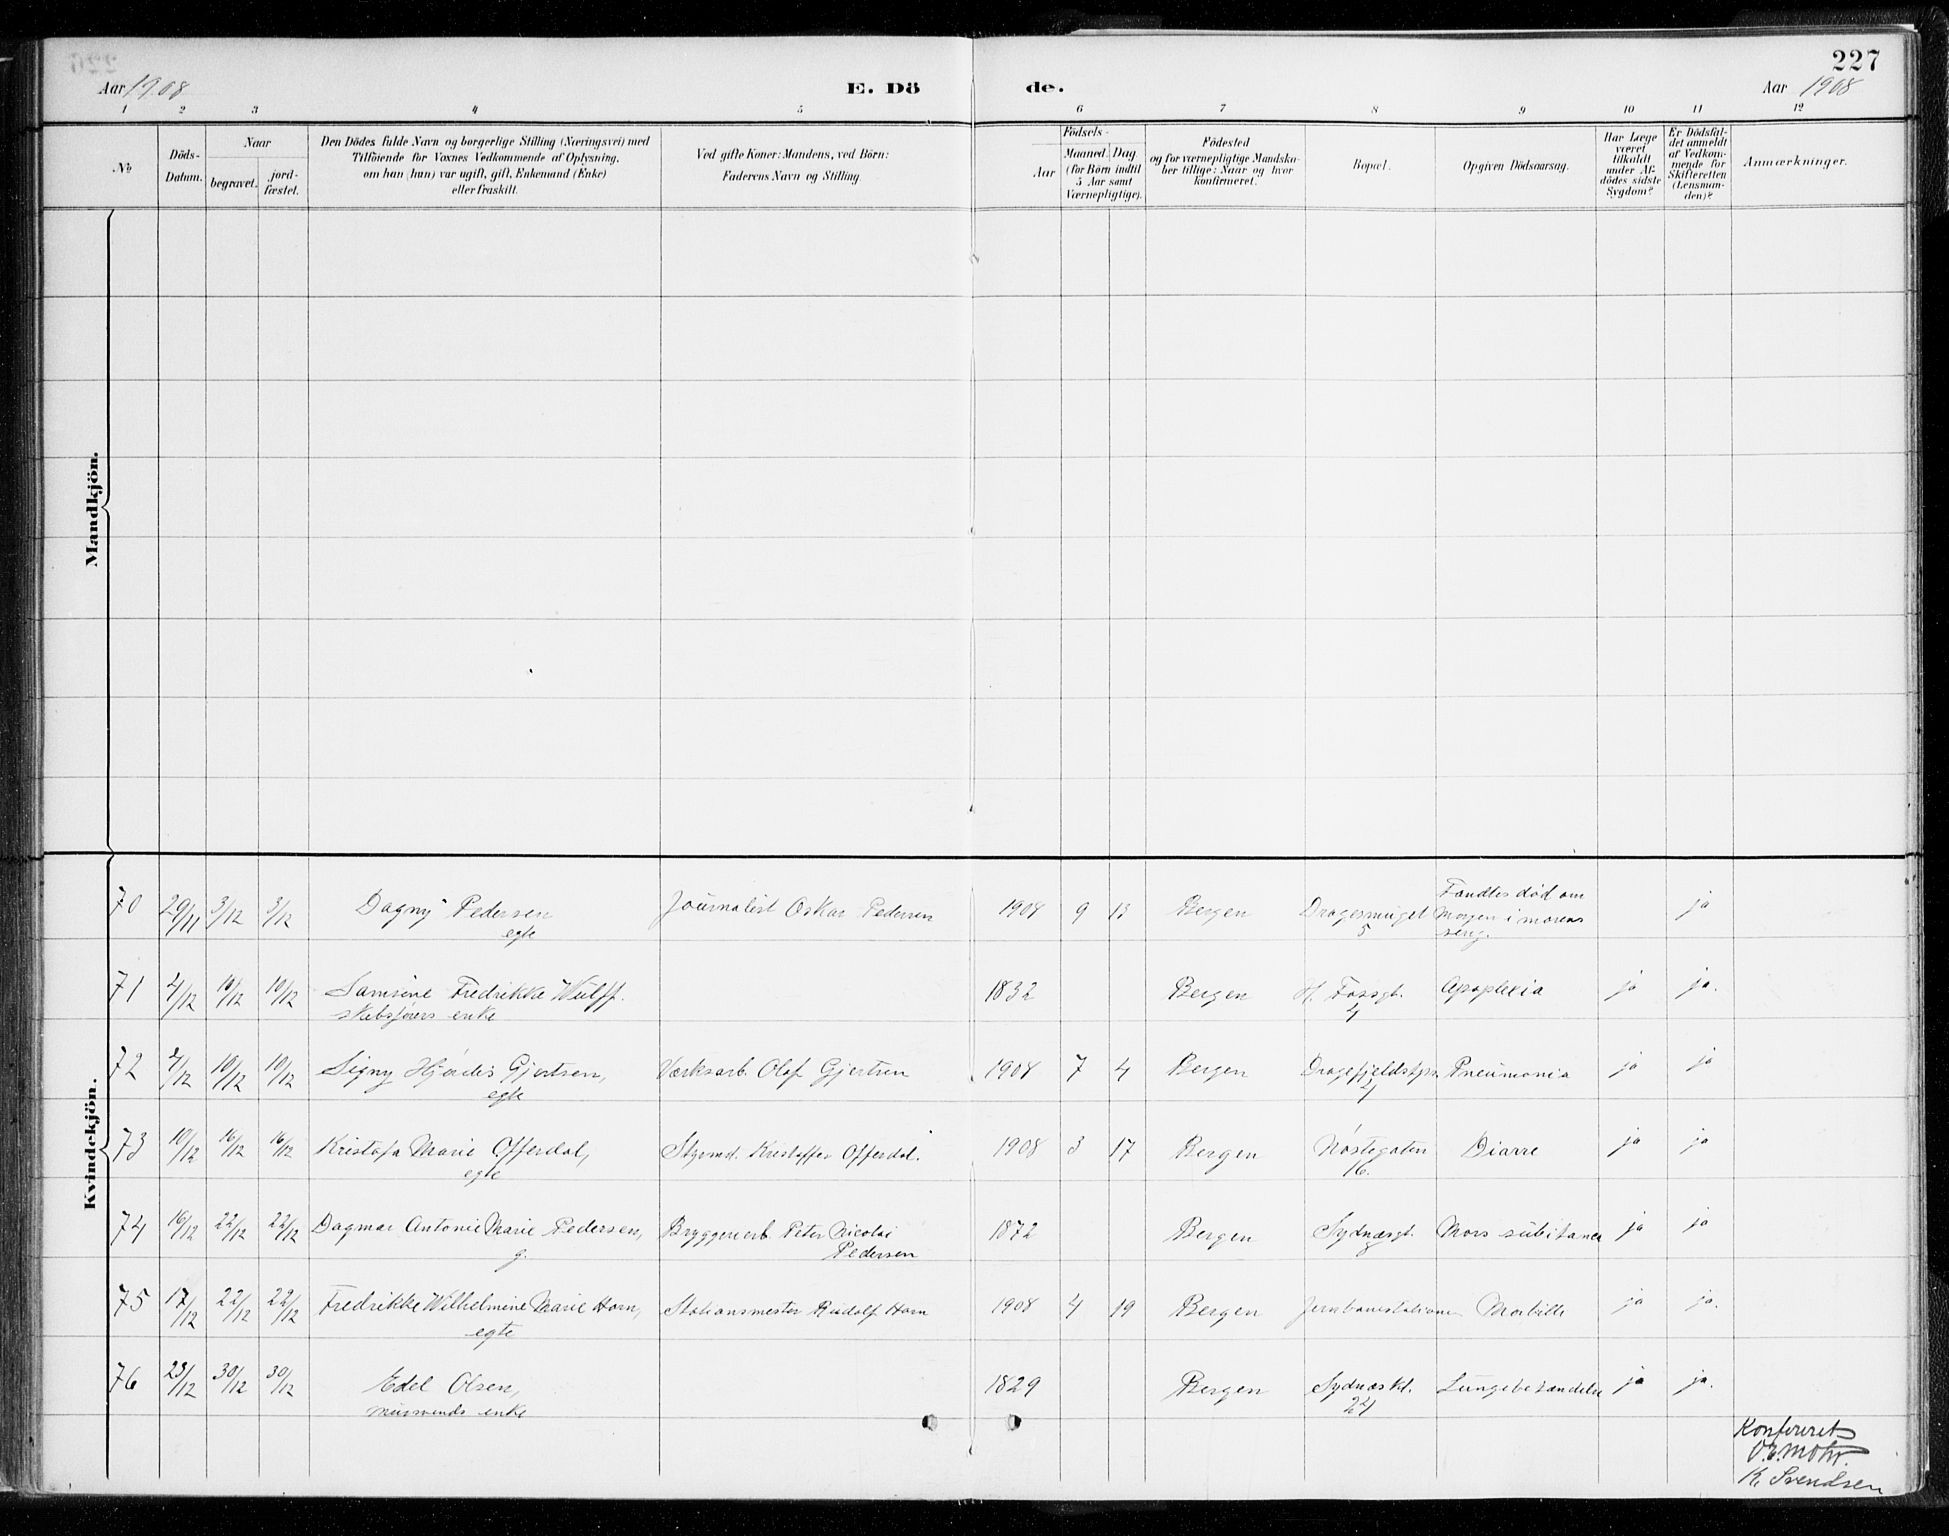 227
Aar 1908 E. Dö de. Aar 1908
1 2 3 4 5 6 7 8 9 10 11 12
No
Döds-
Datum.
Naar
begravet.
jord-
fæstet.
Den Dödes fulde Navn og borgerlige Stilling (Næringsvei) med
Tilföiende for Voxnes Vedkommende af Oplysning,
om han (hun) var ugift, gift, Enkemand (Enke)
eller fraskilt.
Ved gifte Koner: Mandens, ved Börn:
Faderens Navn og Stilling.
Födsels-
Aar
Maaned. Dag
(for Börn indtil
5 Aar samt
Værnepligtige).
Födested
og for værnepligtige Mandska-
ber tillige: Naar og hvor
konfirmeret.
Bopæl.
Opgiven Dödsaarsag.
Har Læge
været
tilkaldt
under Af-
dödes sidste
Sygdom?
Er Dödsfal-
det anmeldt
af Vedkom-
mende for
Skifteretten
(Lensman-
den)?
Anmærkninger.
Mandkjön.
Kvindekjön.
70 29/11 3/12 3/12 Dagny Pedersen Journalist Oskar Pedersen 1908 9 13 Bergen Dragesmuget Fandtes død om ja
egte 5 Morgen i morens
seng.
71 4/12 10/12 10/12 Samsine Fredrikke Wulff. 1832 Bergen H. Fossgt. Apoplexia ja ja.
skibsførers enke 4
72 4/12 10/12 10/12 Signy Hjørdis Gjertsen, Værksarb. Olaf Gjertsen 1908 7 4 Bergen Pneumonia ja ja
egte
73 10/12 16/12 16/12 Kristofa Marie Offerdal, Styrmd. Kristoffer Offerdal. 1908 3 17 Bergen Nøstegaten Diarre ja ja
egte 16.
74 16/12 22/12 22/12 Dagmar Antonie Marie Pedersen, Bryggeriarb. Peter Nicolai 1872 Bergen Sydnæsgt. Mors subitanea ja ja
g. Pedersen 8
75 17/12 22/12 22/12 Fredrikke Wilhelmine Marie Horn, Stationsmester Rudolf Horn 1908 4 19 Bergen Jernbanestationen Morbilli ja ja.
egte
76 23/12 30/12 30/12 Edel Olsen, 1829 Bergen Sydnæskl. Lungebetændelse ja ja.
mursvends enke 24
Konfereret
O. E. Mohr.
K. Svendsen